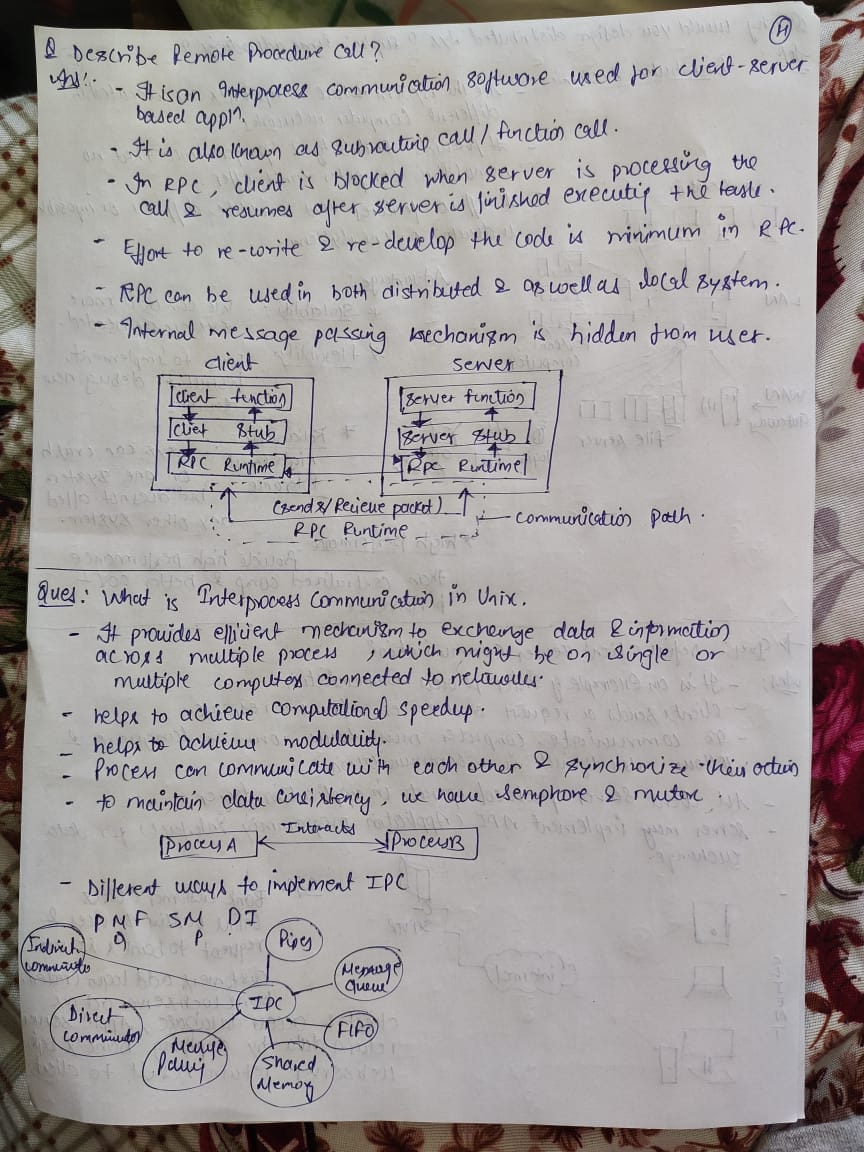 (H)
Q Describe Remote Procedure Call?
Ans:. - It is an Interprocess communication software used for client-server
based appln.
- It is also known as subroutine call / function call.
- In RPC, client is blocked when server is processing the
call & resumes after server is finished executig the task.
- Effort to re-write & re-develop the code is minimum in RPC.
- RPC can be used in both distributed & as well as local system.
- Internal message passing mechanism is hidden from user.
client server
client function server function
Cliet Stub Server Stub
RPC Runtime Rpc Runtime
(send & / Recieve packet)
RPC Runtime
communication Path.
Ques: What is Interprocess Communication in Unix.
- It provides efficient mechanism to exchange data & information
across multiple process, which might be on single or
multiple computer connected to networks.
- helps to achieve computational speedup.
- helps to achieve modularity.
- Process can communicate with each other & synchronize their action
- to maintain data consistency, we have semphore & mutex.
Interacts
Process A Process B
- Different ways to implement IPC
P M F SM D I
Q P
Pipes
Indirect
communicato
Message
Queue
IPC
Direct
communicaton
FIFO
Message
Passing
Shared
Memory